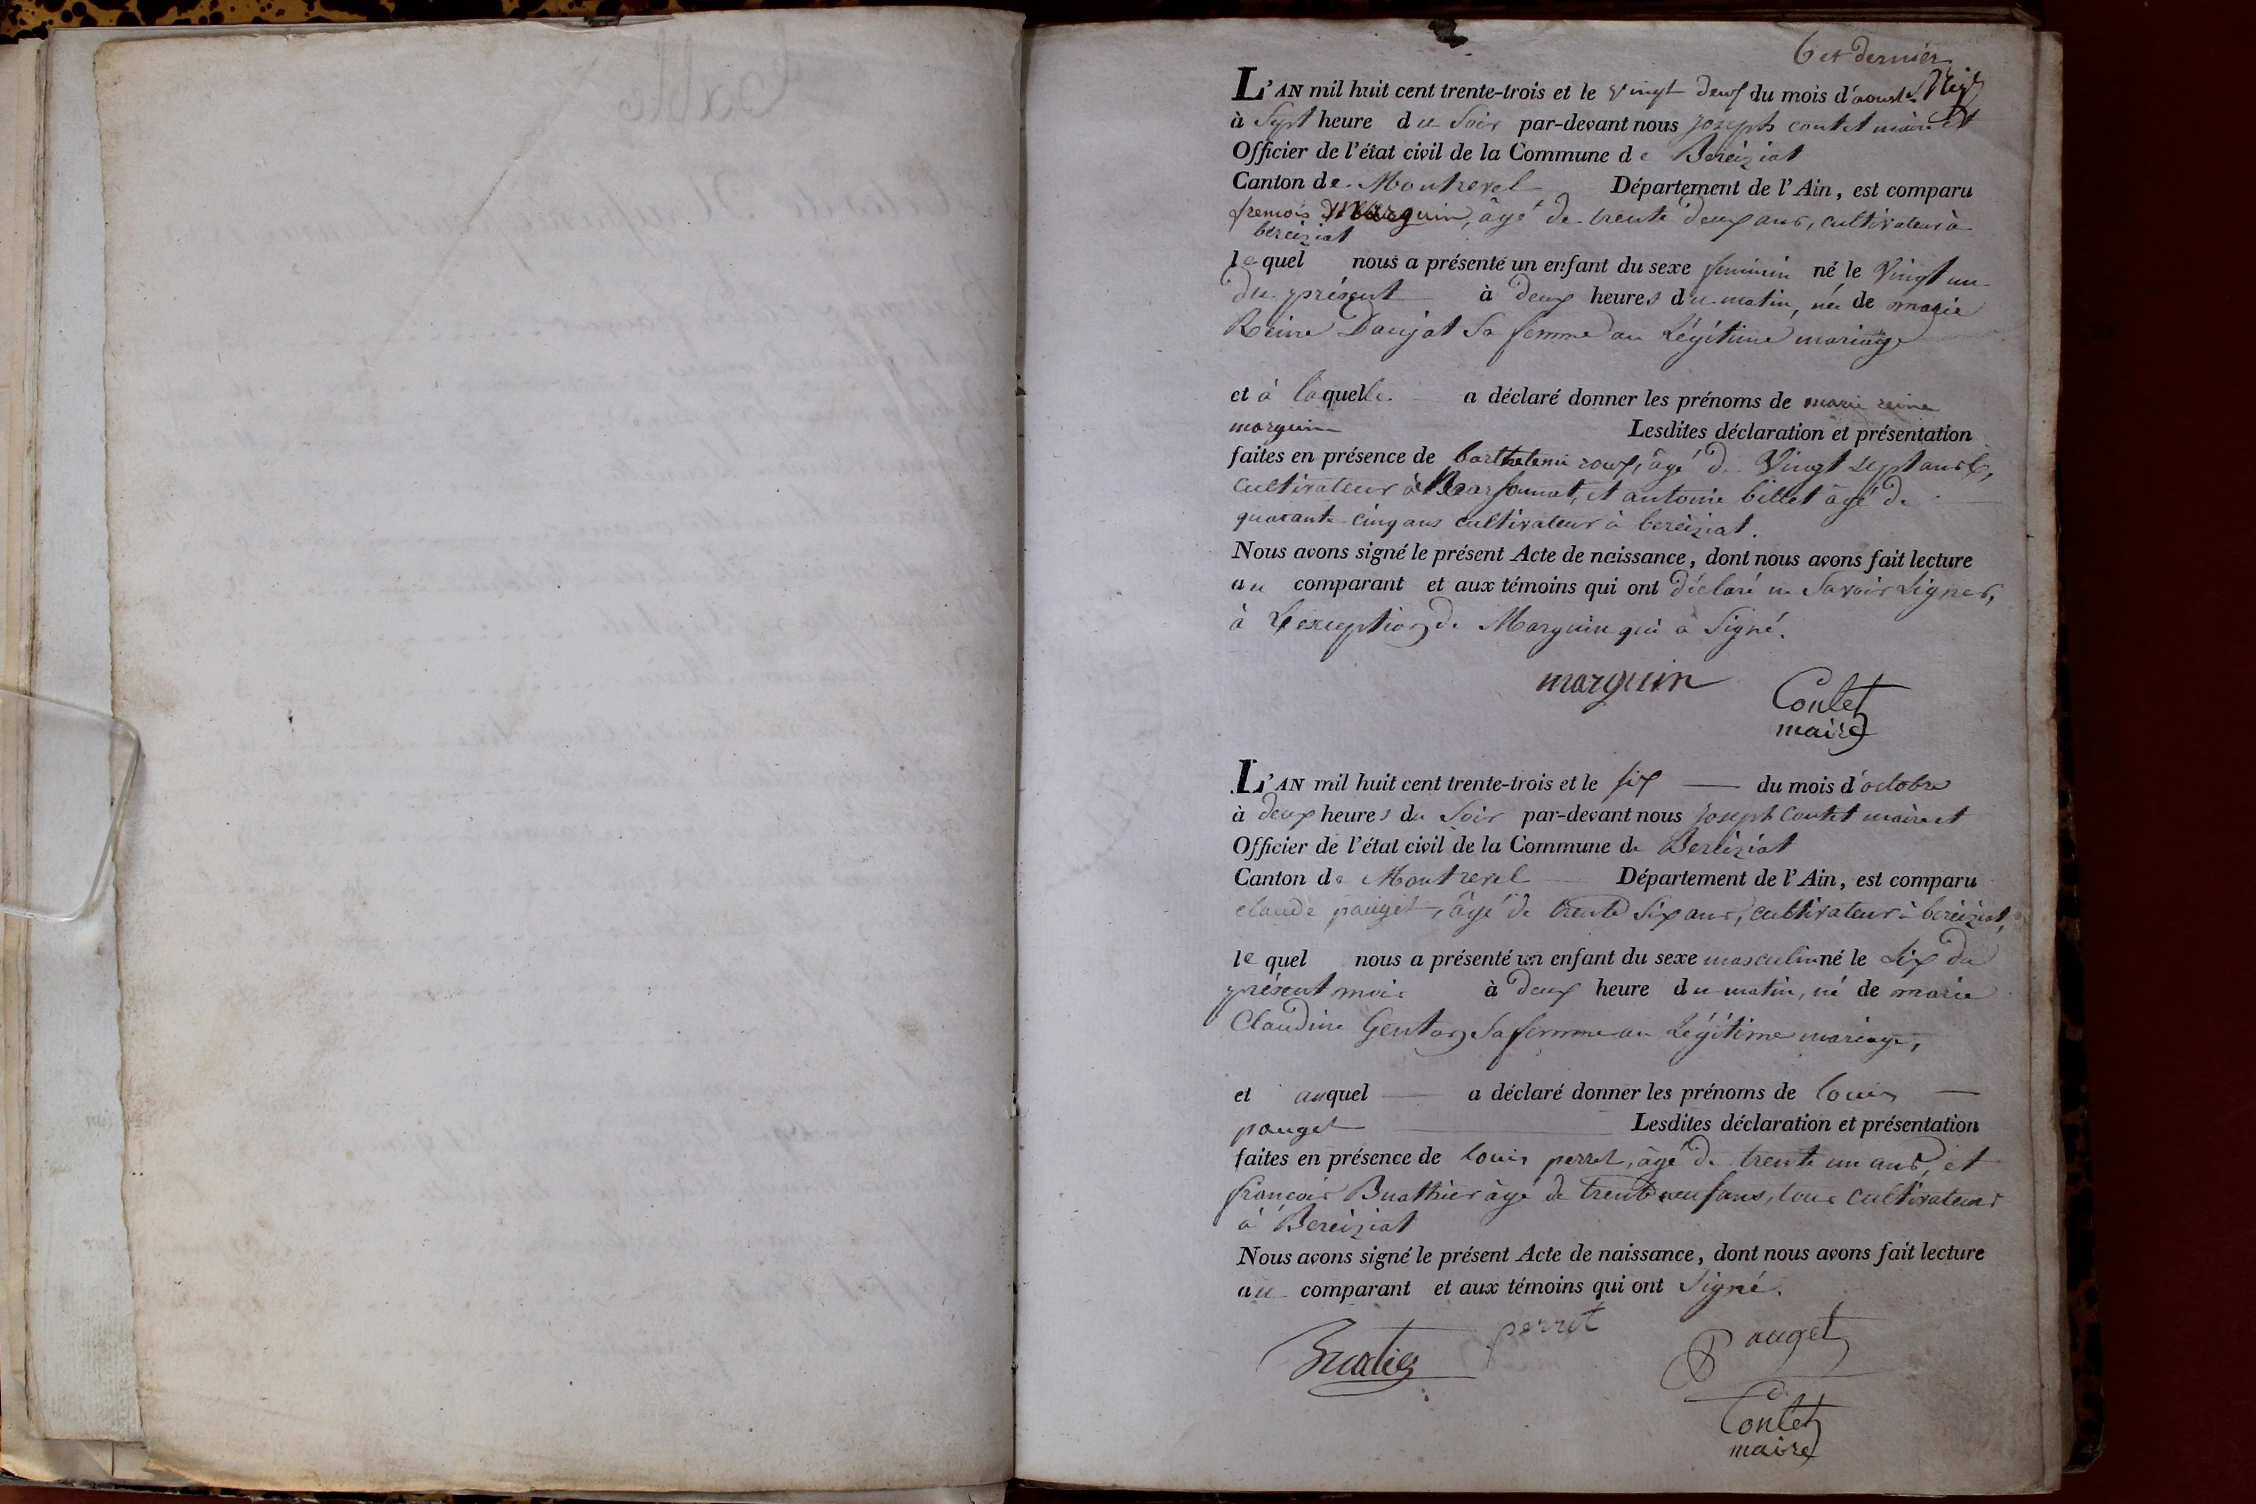 6 et dernier
L'AN mil huit cent trente-trois et le vingt deux du mois d'aoust
à Sept heure du Soir par-devant nous joseph contet maire et
Officier de l'état civil de la Commune de Bereiziat
Canton de Montrevel Département de l'Ain, est comparu
marguin, âgé de trente deux ans, cultivateur à
bereiziat
lequel nous a présenté un enfant du sexe feminin né le Vingt un
du présent à deux heures du matin, née de marie
Reine Daujat Sa femme au Légitime mariage
et à laquelle a déclaré donner les prénoms de marie reine
marguin Lesdites déclaration et présentation
faites en présence de barthelemi roux, âgé de Vingt Sept ans
cultivateur à Marsonnat, et antoine billet âgé de
quarante cinq ans cultivateur à bereiziat.
Nous avons signé le présent Acte de naissance, dont nous avons fait lecture
au comparant et aux témoins qui ont déclaré ne Savoir Signer,
à L'exception de Marguin qui à Signé.
marguin
Contet
maire
L'AN mil huit cent trente-trois et le six du mois d'octobre
à deux heures du Soir par-devant nous joseph Contet maire et
Officier de l'état civil de la Commune de Bereiziat
Canton de Montrevel Département de l'Ain, est comparu
claude pauget, âgé de trente Six ans, cultivateur à bereiziat,
lequel nous a présenté un enfant du sexe masculin né le Six du
présent mois à deux heure du matin, né de marie
Claudine Genton Sa femme au Légitime mariage,
et auquel a déclaré donner les prénoms de louis
pauget Lesdites déclaration et présentation
faites en présence de louis perret, âgé de trente un ans, et
francois Buathier âgé de trente neuf ans, tous cultivateurs
à Bereiziat
Nous avons signé le présent Acte de naissance, dont nous avons fait lecture
au comparant et aux témoins qui ont Signé.
perret
Buatier
Pauget
Contet
maire